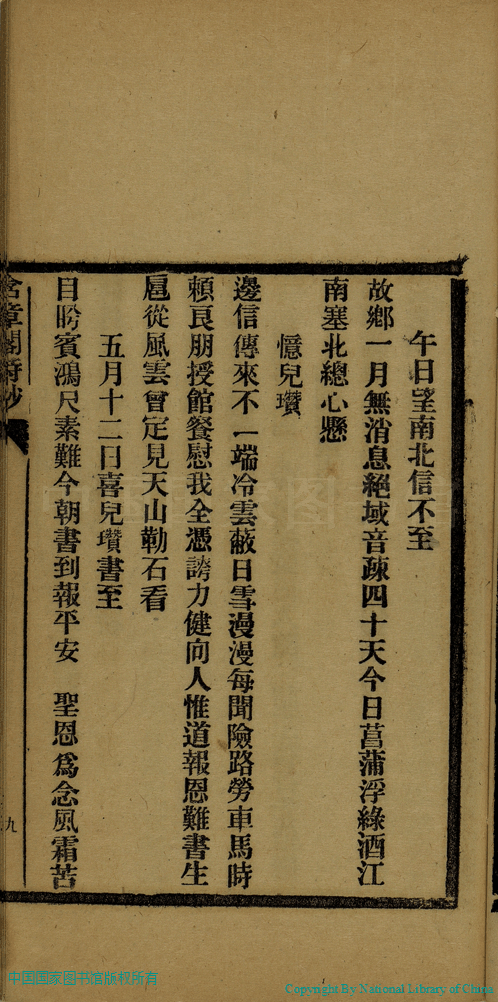 午日望南北信不至
故鄉一月無消息絕域音疎四十天今日菖蒲浮綠酒江
南塞北總心懸
憶兒瓚
邊信傳來不一端冷雲蔽日雪漫漫每聞險路勞車馬時
賴良朋授館餐慰我全憑誇力健向人惟道報恩難書生
扈從風雲會定見天山勒石看
五月十二日喜兒瓚書至
目盼賓鴻尺素難今朝書到報平安 聖恩爲念風霜苦
含章閣詩鈔
九
中国国家图书馆版权所有
Copyright By National Library of China